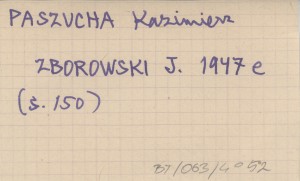 PASZUCHA Kazimierz
ZBOROWSKI J. 1947 e
(s. 150)
BT/063/4º52